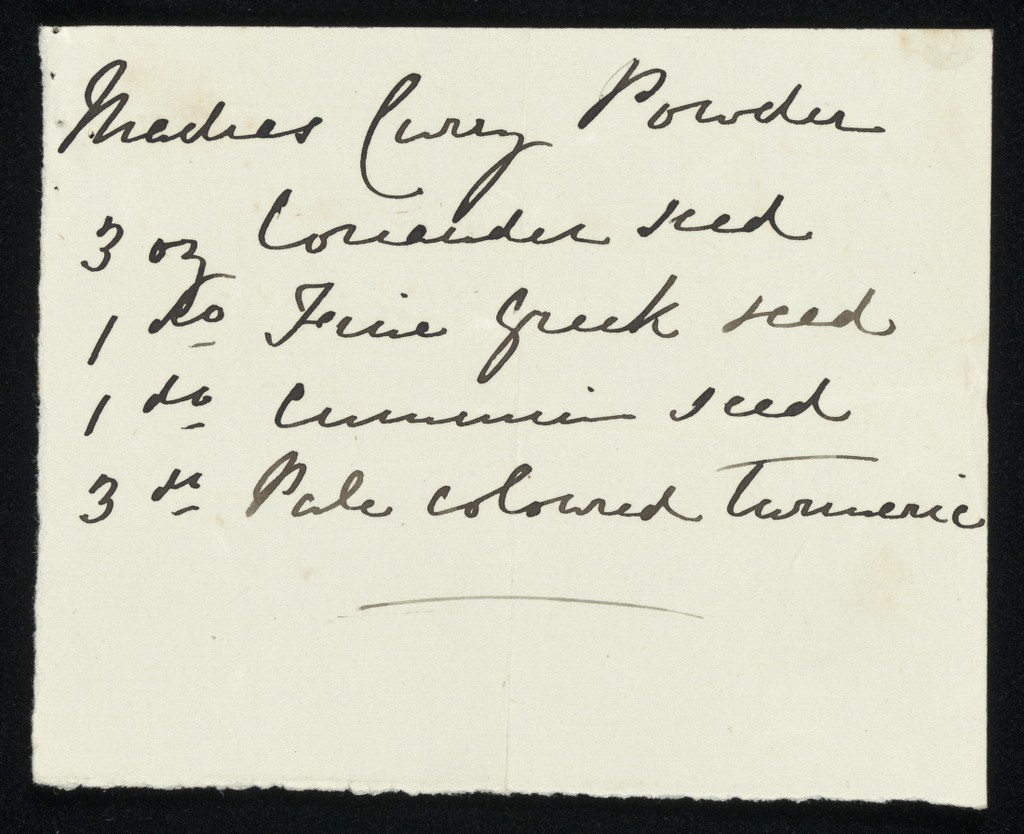 Madras Curry Powder
3 oz Coriander seed
1 do Fine Greek seed
1 do Cummin seed
3 do Pale coloured Turmeric